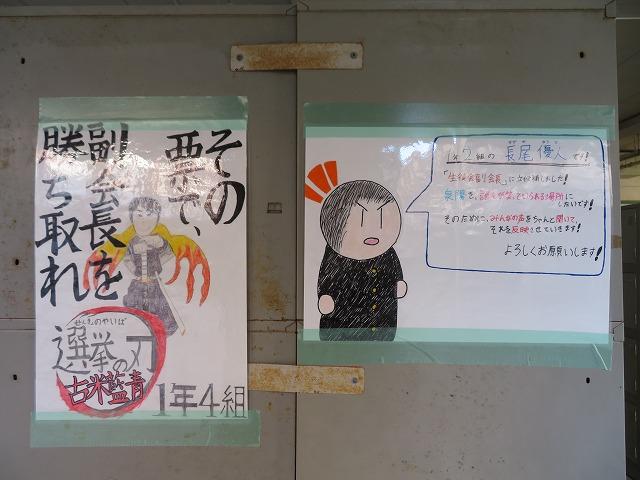 その
票で、
副会長を
勝ち取れ
せんきょのやいば
選挙の刃
古米藍青
1年4組
1の2組の 長尾 優人です!
「生徒会副会長」に立候補しました!
泉陽を、誰もが笑っていられる場所に
したいです!
そのために、みんなの声をちゃんと聞いて、
それを反映させていきます!
よろしくお願いします!